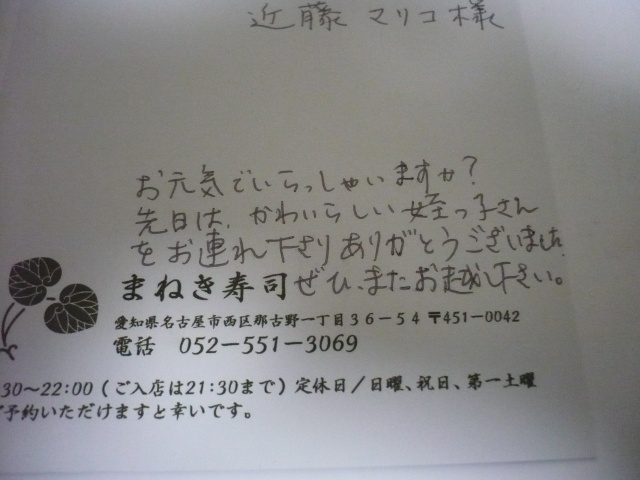 近藤 マリコ様
お元気でいらっしゃいますか?
先日は、かわいらしい姪っ子さん
をお連れ下さりありがとうございました。
まねき寿司 ぜひ、またお越し下さい。
愛知県名古屋市西区那古野一丁目36−54 〒451−0042
電話 052−551−3069
30〜22:00(ご入店は21:30まで)定休日/日曜、祝日、第一土曜
予約いただけますと幸いです。